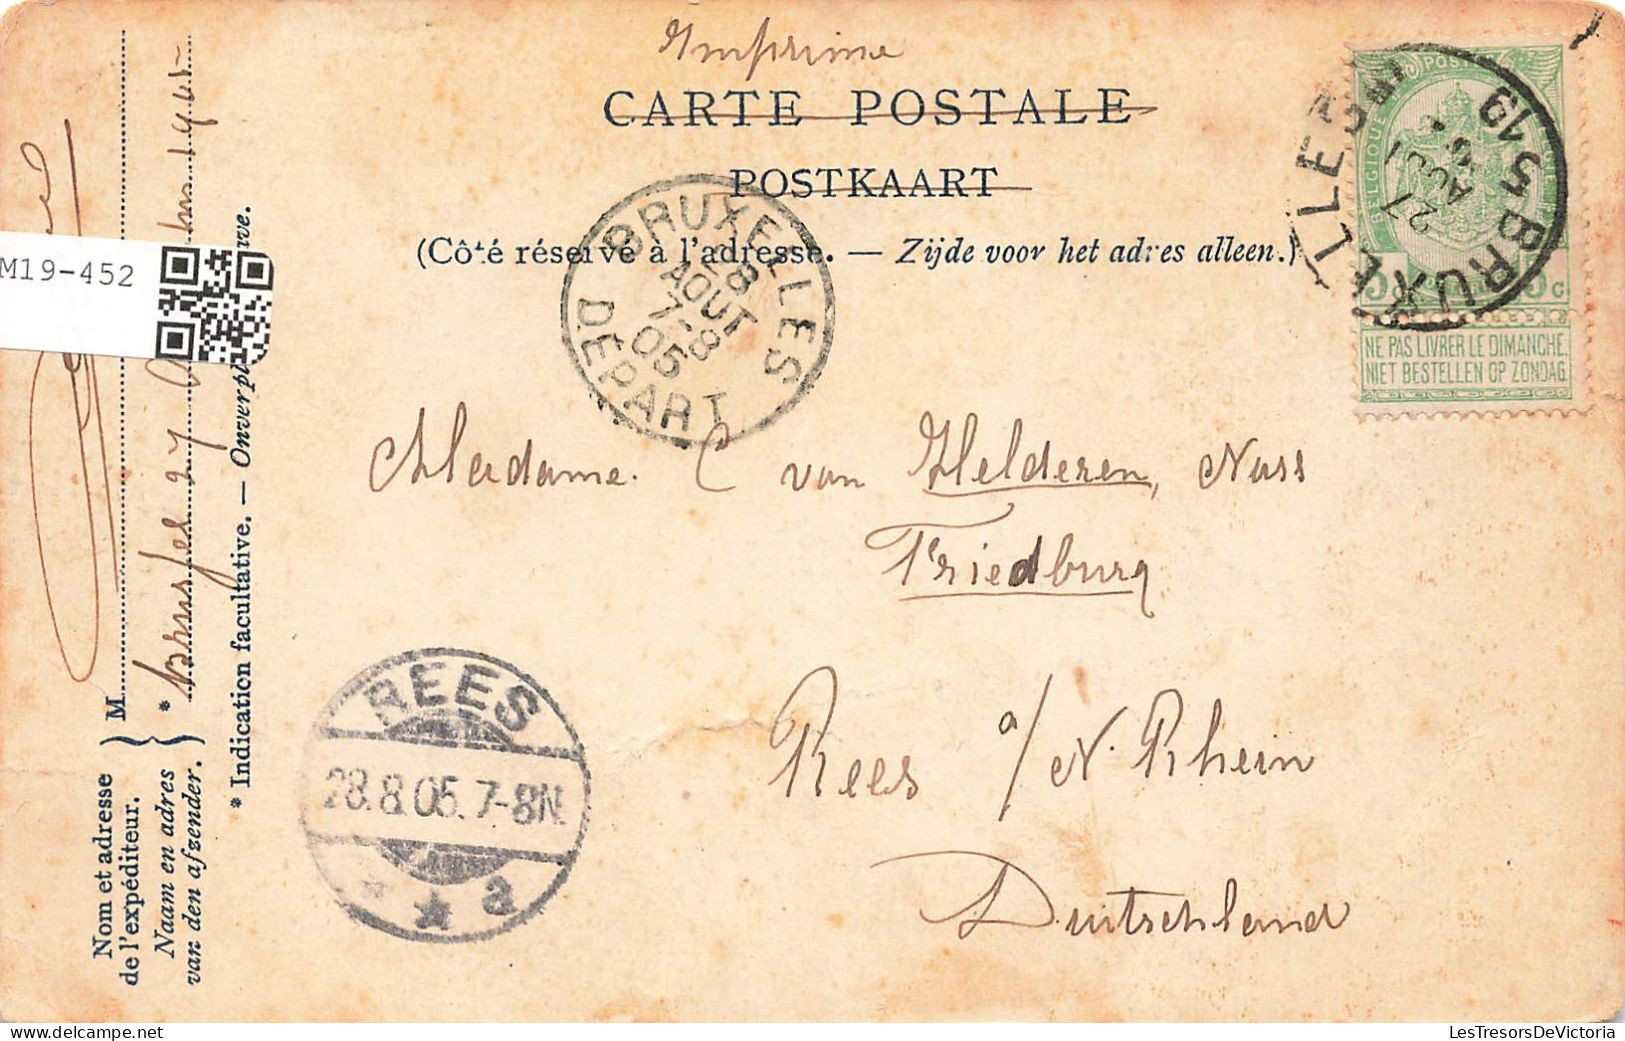 Imprime
CARTE POSTALE
POSTKAART
(Côté réservé à l'adresse. — Zijde voor het adres alleen.)
BRUXELLES
28
AOUT
7-8
05
DÉPART
BRUXELLES
27
AOU
1905
BELGIQUE
NE PAS LIVRER LE DIMANCHE.
NIET BESTELLEN OP ZONDAG
Madame. C van Helderen, Nass
Friedburg
Rees a/N. Rhein
Duitschland
REES
28.8.05.7-8N.
* * a
M19-452
Nom et adresse
de l'expéditeur.
Naam en adres
van den afzender.
M
* Brussel 27 1905
* Indication facultative. —
LesTresorsDeVictoria.com